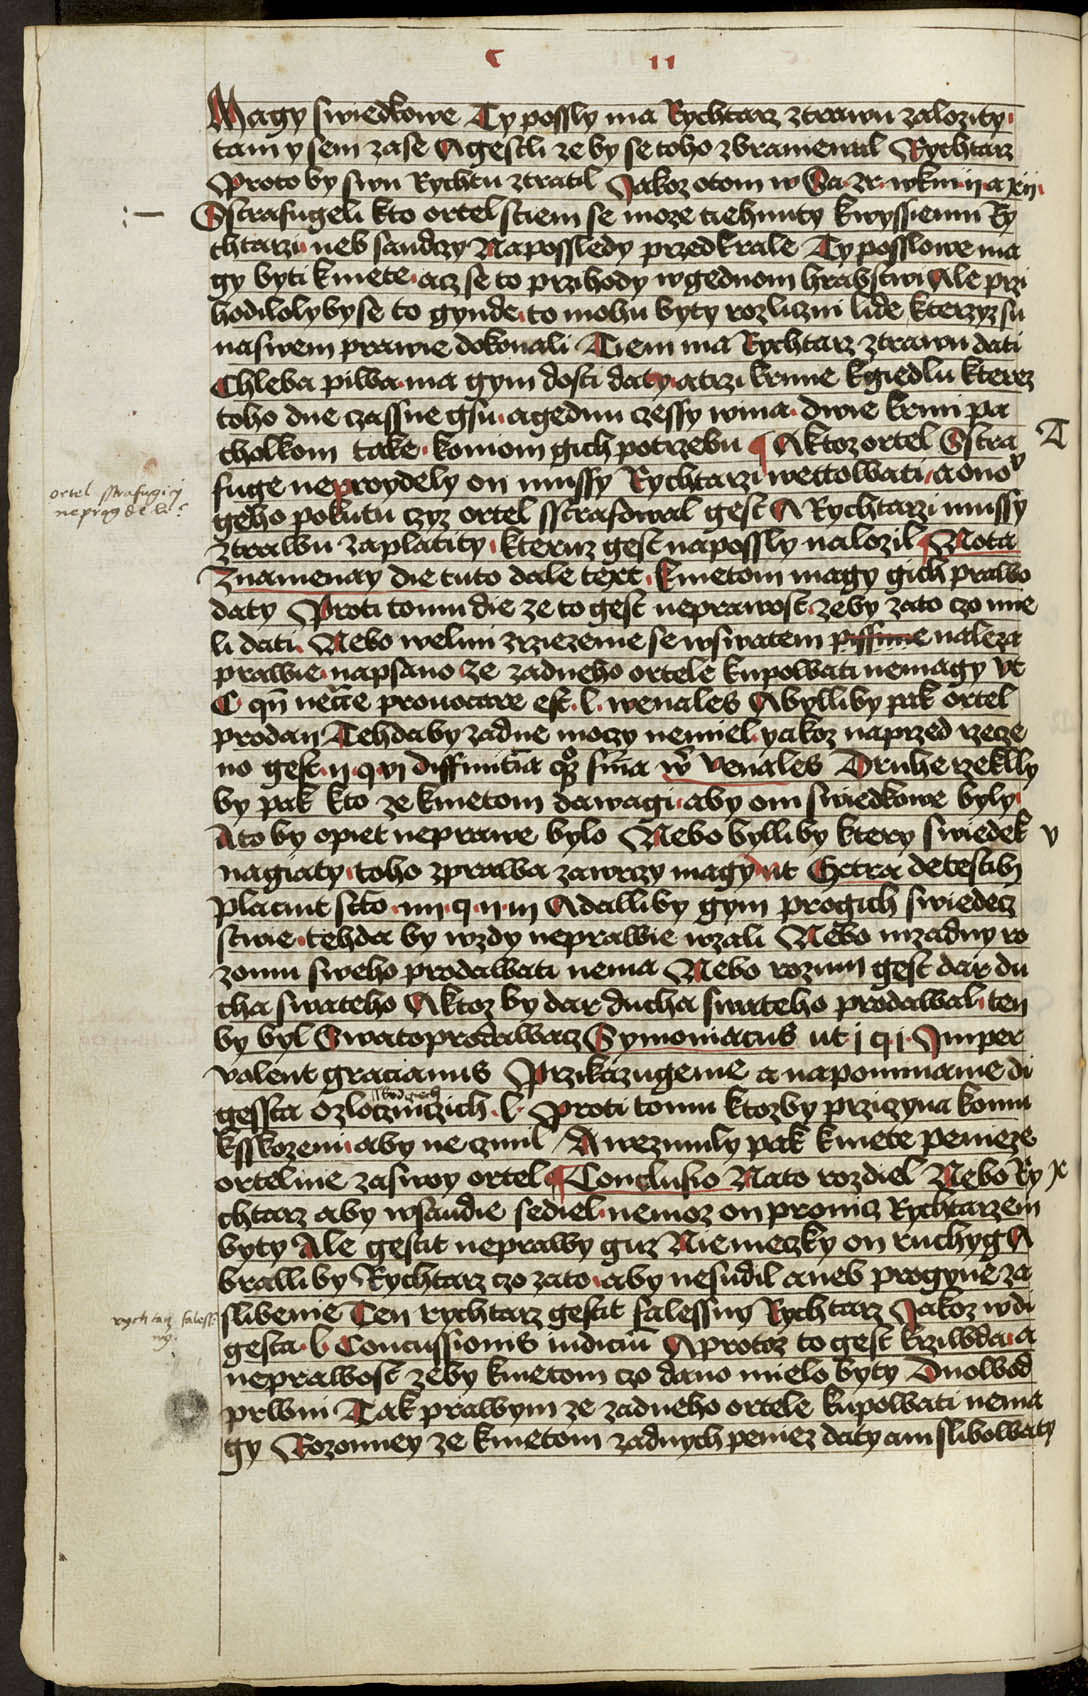 C II
Magy swiedkowe Ty possly ma Rychtarz ztrawu zalozity
tam y sem zase Agestli ze by se toho zbraniewal Rychtarz
Proto by swu Rychtu ztratil Jakoz o tom w Ca. zr. wkm. ij a xiij
Sstrafugeli kto ortel sciem se moze tiehnuty kwyssiemu Ry
chtarzi neb saudczy Napossledy przed krale Ty posslowe ma
gy byti kmete acz se to przihody wgednom hrabstwi Ale przi
hodiloly by se to gynde to mohu byty rozliczni lide kterzyz su
naswem prawie dokonali Tiem ma Rychtarz ztrawu dati
Chleba piwa ma gym dosti daty atrzi krmie kgiedlu kterez
toho dne czassne gsu agednu czessy wina dwie krmi pa
cholkom take koniom gich potrzebu ¶ Aktoz ortel Sstra A
fuge neproydely on mussy Rychtarzi wettowati a ono v
geho pokutu czyz ortel sstrafowal gest A Rychtarzi mussy
ztrawu zaplatity kteruz gest napossly nalozil ¶ Nota
Znamenay die tuto dale text Kmetom magy gich prawo
daty Proti tomu die ze to gest neprawost zeby zato czo mne
li dati Nebo welmi zrziezenie se wswatem pissme naleza
prawie napsano ze zadneho ortele kupowati nemagy vt
C qn necce prouocare est l. wenales Abylliby pak ortel
prodan Tehda by zadne moczy nemiel yakoz naprzed rzecze
no gest ij q vj diffinitia qz sma w Venales Druhe rzeklly
by pak kto ze kmetom dawagi aby oni swiedkowe byly
Ato by opiet neprawe bylo Nebo bylliby ktery swiedek v
nagiaty toho zprawa zawrzy magy ut Extra de testib
placuit scto iiij q ij iij Adalliby gym progich swiedecz
stwie tehda by wzdy neprawie wzali Nebo nizadny ro
zomu sweho prodawati nema Nebo rozum gest dar du
cha swateho Aktoz by dar ducha swateho prodawal ten
by byl Swatoprodawacz Symoniacus ut j q j Imper
valent gracianus Przikazugeme a napominame di
gessta ozloczinczich l. Proti tomu ktozby przicyna komu
ksskozeni aby ne czinil Awezmuly pak kmete penieze
ortelnie zaswoy ortel ¶ Conclusio Nato rozdiel Nebo Ry x
chtarz aby wsaudie sediel nemoz on promicz Rychtarzem
byty Ale gestit neprawy guz Niemeczky on ruchyg A
bralliby Rychtarz czo zato aby nesudil aneb progyne za
slibenie Ten rychtarz gestit falessny Rychtarz Jakoz w di
gesta l. Concussionis iudiciu Aprotoz to gest krziwda a
neprawost zeby kmetom czo dano mielo byty Duowod
prwni Tak prawym ze zadneho ortele kupowati nema
gy Rozomney ze kmetom zadnych peniez daty ani slibowaty
ortel sstrafugicy
neproyde li
rychtarz faless
ny